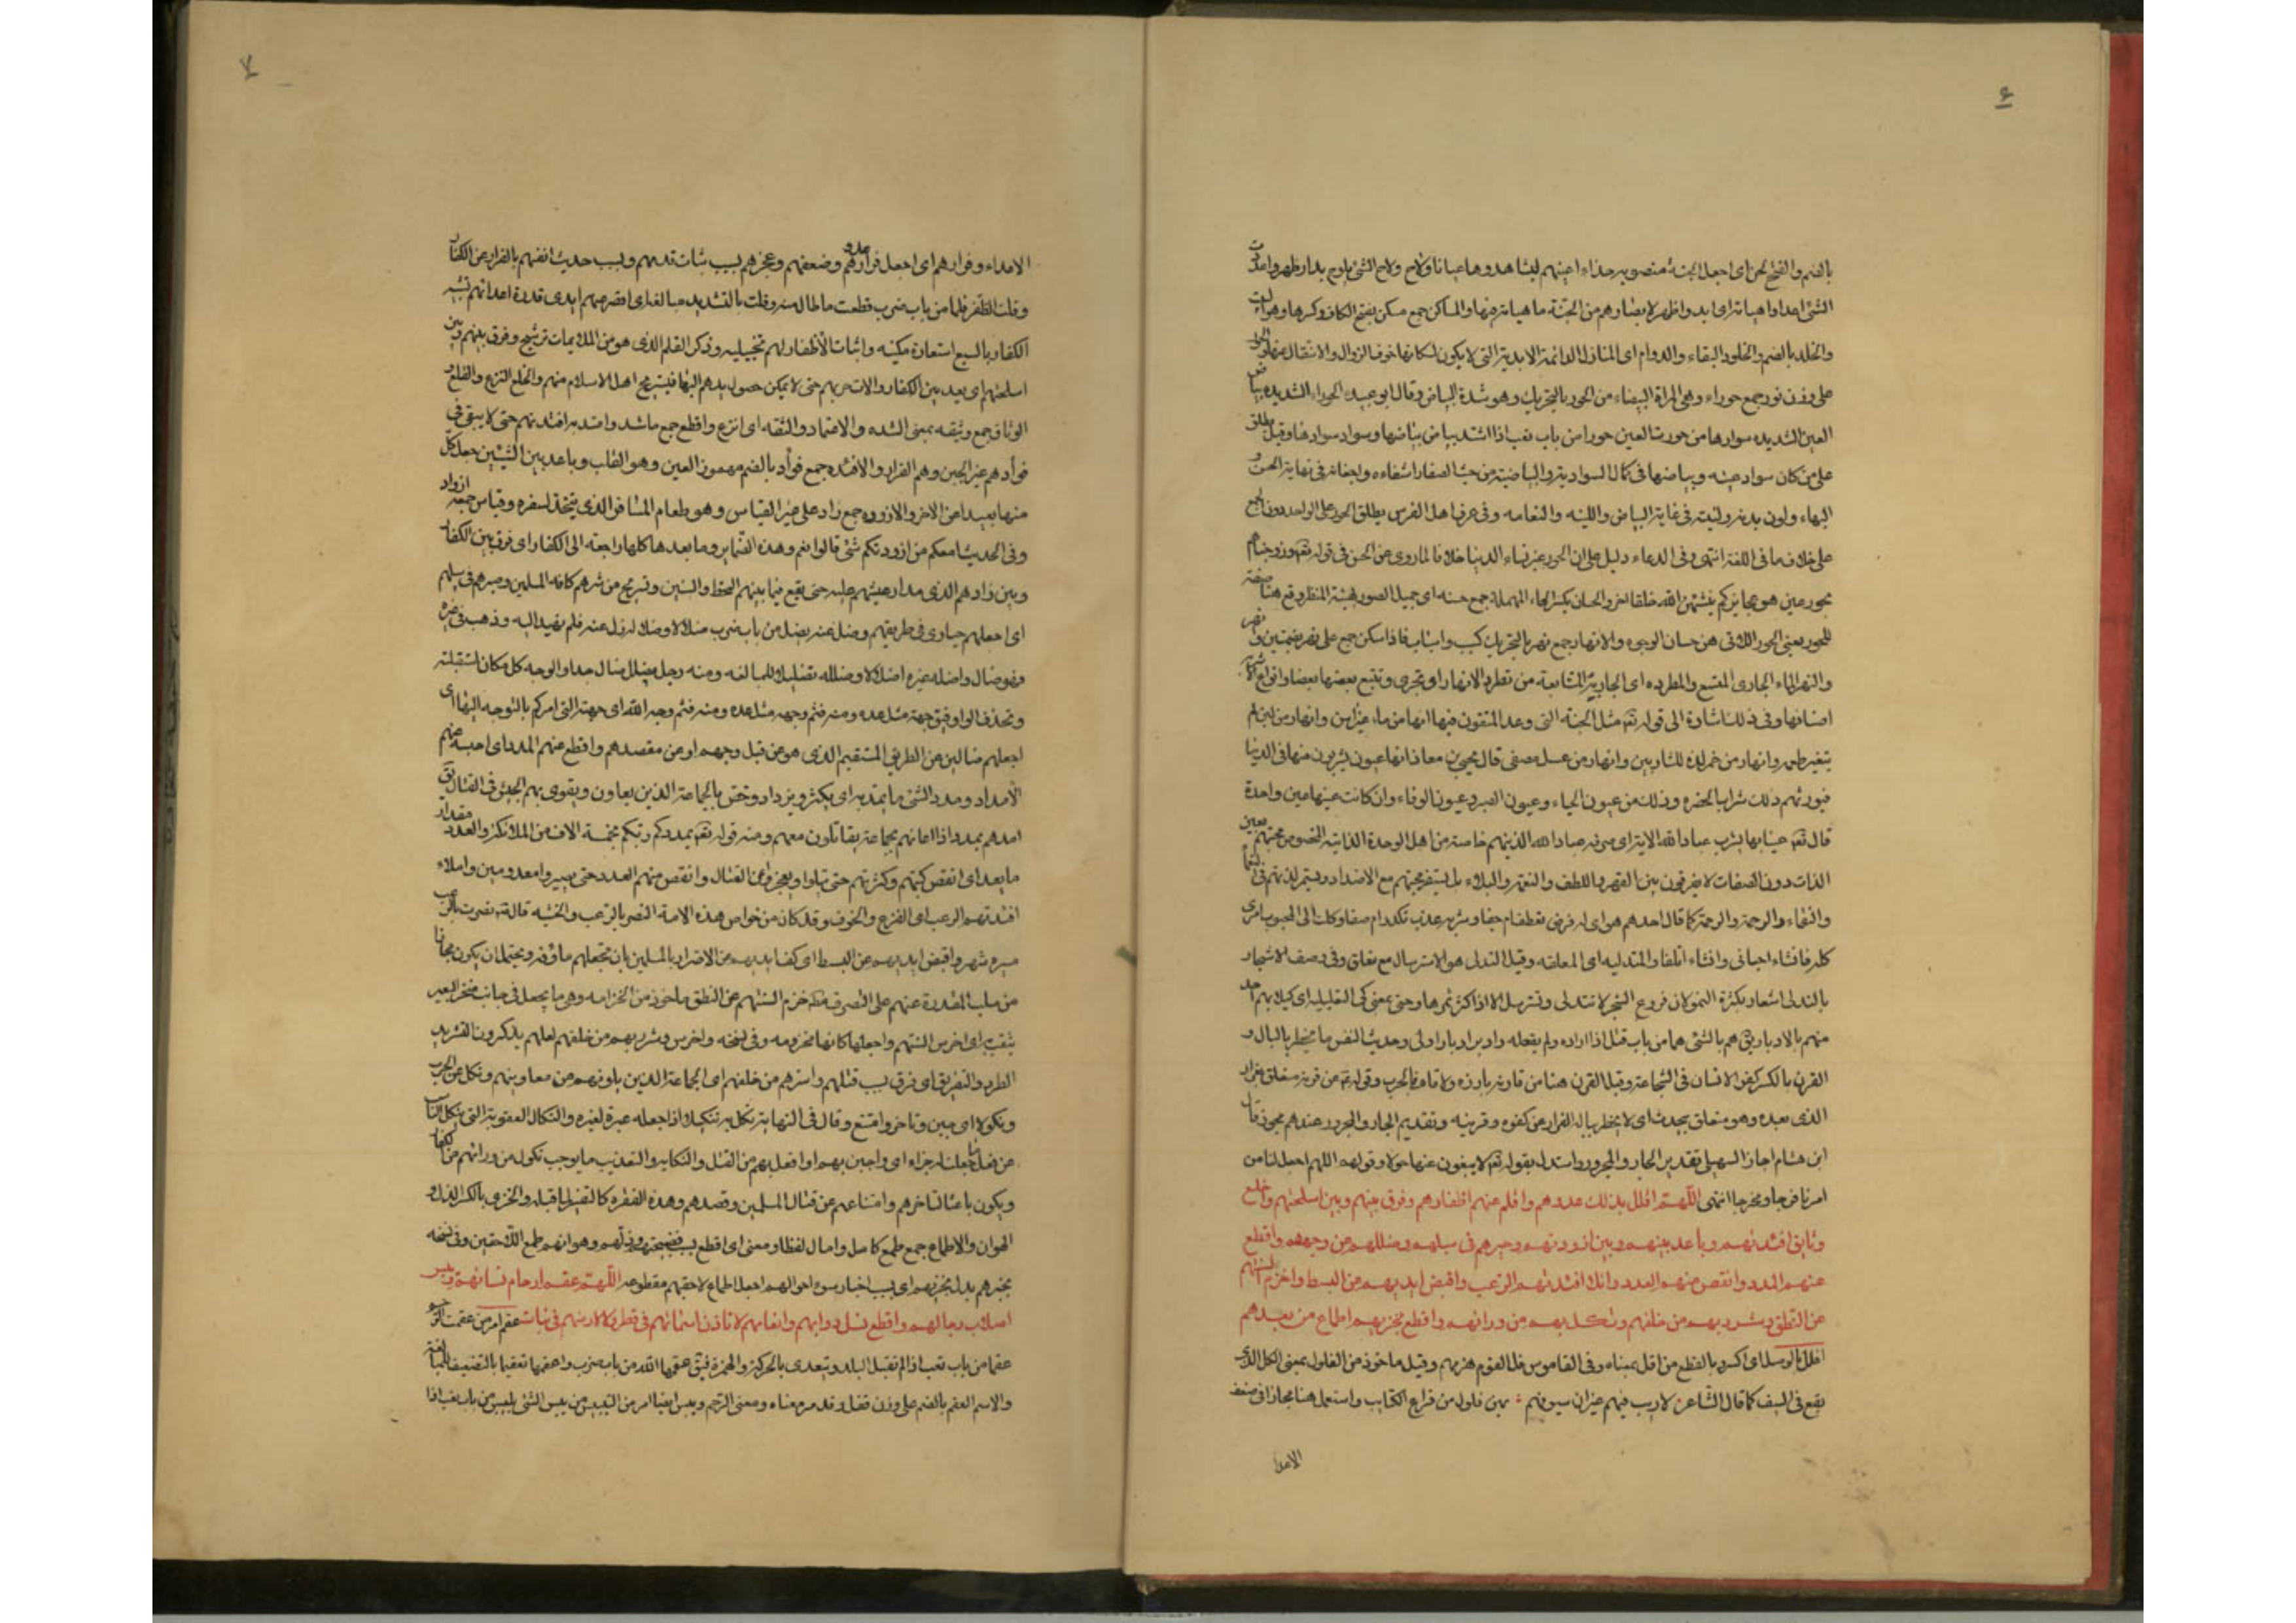 ۶
بالضم والفتح نحن ای اجعل الجنة منصوبة حذاء اعینهم لیشاهدوها عیانا ولاح ولاح الشئ یلوح بدا وظهر واعددت
الشئ اعدادا هیاته ای ابد واظهر لابصارهم من الجنة ما هیأته فیها والمساکن جمع مسکن بفتح الکاف وکسرها وهو البیت
والخلد بالضم والخلود البقاء والدوام ای المنازل الدائمة الابدیة التی لا یکون لسکانها خوف الزوال والانتقال عنها والحور
علی وزن نور جمع حوراء وهی المرأة البیضاء من الحور بالتحریک وهو شدة البیاض وقال ابو عبیده الحوراء الشدیده بیاض
العین الشدیده سوادها من حورت العین حورا من باب تعب اذا اشتد بیاض بیاضها وسواد سوادها وقیل یطلق
علی من کان سواد عینه وبیاضها فی کمال السوادیة والبیاضیة من حیث اصفار اشفاره واجفانه فی نهایة الحسن و
البهاء ولون بدنه ولینته فی غایة البیاض واللینه والنعامه وفی عرف اهل الفرس یطلق الحور علی الواحد دون الجمع
علی خلاف ما فی اللغة انتهی وفی الدعاء دلیل علی ان الحور غیر نساء الدنیا خلافا لما روی عن الحسن فی قوله تعه وزوجناهم
بحور عین هو عجایزکم ینشئهن الله خلقا اخر والحسان بکسر الحاء المهملة جمع حسنه ای جمیل الصور بهیئة المنظر وقع هنا صفة
للحور یعنی الحور اللاتی هن حسان الوجوه والانهار جمع نهر بالتحریک کسبب واسباب فاذا سکن جمع علی نهر بضمتین ونهر
والنهر الماء الجاری المتسع والمطرده ای الجاریة المتتابعة من تطرد الانهار او تجری وتتبع بعضها بعضا وانواع الاشربة
اصنافها وفی ذلک اشارة الی قوله تعه مثل الجنة التی وعد المتقون فیها انهار من ماء غیر اسن وانهار من لبن لم
یتغیر طعمه وانهار من خمر لذة للشاربین وانهار من عسل مصفی قال یحیی بن معاذ انها عیون یشربون منها فی الدنیا
فیورثهم ذلک شراب الحضره وذلک من عیون الحیاء وعیون الصبر وعیون الوفاء وان کانت عینها عین واحدة
قال تعه عینا یشرب بها عباد الله الایة ای صرفه عباد الله الذین هم خاصته من اهل الوحدة الذاتیة المخصوص محبتهم بعین
الذات دون الصفات لا یفرقون بین القهر واللطف والنعمة والبلاء بل یستقر محبتهم مع الاضداد ویستمر لذتهم فی النعماء
والنقماء والرحمة والزحمة کما قال احدهم هوای له فرض تعطف ام جفا ومشربه عذب تکدر ام صفا وکلت الی المحبوب امری
کله فان شاء احیانی وان شاء اتلفا والمتدلیه ای المعلقه وقیل التدلی هو الاسترسال مع تعلق وفی وصف الاشجار
بالتدلی اشعار بکثرة الثمر لان فروع الشجر لا تتدلی وتسترسل الا اذا کثر ثمرها وحتی بمعنی کی التعلیلیة ای کیلا یهم احد
منهم بالادبار یق هم بالشئ هما من باب قتل اذا اراده ولم یفعله وادبر ادبارا ولی وحدیث النفس ما یخطر بالبال و
القرن بالکسر کفو الانسان فی الشجاعة وقیل القرن هنا من قاونه بارزه ولاقاه فی الحرب وقوله عن قرنه متعلق بفرار
الذی بعده وهو متعلق بیحدث ای لا یخطر بباله الفرار من کفوه وقرینه وتقدیم الجار والمجرور عندهم مجوز قال
ابن هشام اجاز السهیلی تقدیر الجار والمجرور واستدل بقوله تعه لا یبغون عنها حولا وقولهم اللهم اجعل لنا من
امرنا فرجا ومخرجا انتهی اللهم افلل بذلک عدوهم واقلم عنهم اظفارهم وفرق بینهم وبین اسلحتهم واخلع
وثایق افئدتهم وباعد بینهم وبین ازودتهم وحیرهم فی سبلهم وضللهم عن وجههم واقطع
عنهم المدد وانقص منهم العدد واملأ افئدتهم الرعب واقبض ایدیهم عن البسط واخزم السنتهم
عن النطق وشرد بهم من خلفهم ونکل بهم من ورائهم واقطع بخزیهم اطماع من بعدهم
افلل بالوسل ای اکسر بالقطع من افل بمعناه وفی القاموس فل القوم هزمهم وقیل ماخوذ من الفلول بمعنی الکل الذی
یقع فی السیف کما قال الشاعر لا ریب فیهم غیر ان سیوفهم : بهن فلول من قراع الکتایب واستعمل هنا مجازا فی ضعف
الاعدا
۷
الاعداء وفرارهم ای اجعل فرار عدوهم وضعفهم وعجزهم بسبب ثبات قدمهم وبسبب حدیث انفسهم بالفرار عن الکفار
وقلمت الظفر قلما من باب ضرب قطعت ما طال منه وقلمت بالتشدید مبالغة ای اقصر عنهم ایدی قدرة اعدائهم تشبیه
الکفار بالسبع استعارة مکنیه واثبات الاظفار لهم تخییلیه وذکر القلم الذی هو من الملایمات ترشیح وفرق بینهم وبین
اسلحتهم ای بعد بین الکفار والات حربهم حتی لا یمکن حصول یدهم الیها فیستریح اهل الاسلام منهم والخلع النزع والقلع و
الوثاق جمع وثیقه بمعنی الشده والاعتماد والثقه ای انزع واقطع جمع ما شد واعتد به افئدتهم حتی لا یبقی فی
فوأدهم غیر الجبن وهم الفرار والافئده جمع فوأد بالضم مهموز العین وهو القلب وباعد بین الشیئین جعل کل
منهما بعیدا عن الاخر والازوده جمع زاد علی غیر القیاس وهو طعام المسافر الذی یتخذ لسفره وقیاس جمعه ازواد
وفی الحدیث امعکم من ازودتکم شئ قالوا نعم وهذه الضمایر وما بعدها کلها راجعة الی الکفار ای فرق بین الکفار
وبین زادهم الذی مدار عیشهم علیه حتی یقع فیما بینهم القحط والسنین وتستریح من شرهم کافة المسلمین وحیرهم فی سبلهم
ای اجعلهم حیاری فی طریقهم وضل عنه یضل من باب ضرب ضلالا وضلالة زل عنه فلم یهتد الیه وذهب فی غیره
فهو ضال واضله غیره اضلالا وضلله تضلیلا للمبالغه ومنه رجل مضلل ضال جدا والوجه کل مکان استقبلته
وتحذف الواو فیق جهة مثل عده ومنه فثم وجهه مثل عده ومنه فثم وجه الله ای جهته التی امرکم بالتوجه الیها ای
اجعلهم ضالین عن الطریق المستقیم الذی هو من قبل وجههم او عن مقصدهم واقطع عنهم المدد ای احبسه عنهم
الامداد ومدد الشئ ما یمد به ای یکثر ویزداد وخص بالجماعة الذین یعاون ویقوی بهم الجیش فی القتال یق
امدهم بمدد اذا اعانهم بجماعة یقاتلون معهم ومنه قوله تعه یمددکم ربکم بخمسة الاف من الملائکة والعدد مقدار
ما یعد ای انقص کمیتهم وکثرتهم حتی یقلوا ویعجزوا عن القتال وانقص منهم العدد حتی یصیروا معدومین واملاء
افئدتهم الرعب ای الفزع والخوف وقد کان من خواص هذه الامة النصر بالرعب والخشیه قال نصرت بالرعب
مسیرة شهر واقبض ایدیهم عن البسط ای کف ایدیهم عن الاضرار بالمسلمین بان تجعلهم ماؤفة ویحتمل ان یکون مجازا
من سلب القدرة عنهم علی التصرف خزم السنتهم عن النطق ماخوذ من الخزامه وهی ما یجعل فی جانب منخر البعیر
یثقب ای اخرس السنتهم واجعلها کانها مخزومه وفی نسخة واخرس وشرد بهم من خلفهم لعلهم یذکرون التشرید
الطرد والتفریق ای فرق بسبب قتلهم واسرهم من خلفهم ای الجماعة الذین یاونهم من معاونیهم ونکل عن الحرب
ونکولا ای جبن وتاخر وامتنع وقال فی النهایة نکل به تنکیلا اذا جعله عبرة لغیره والنکال العقوبة التی ینکل الناس
عن فعل جعلت له جزاء ای واجبن بهم او افعل بهم من القتل والنکایة والتعذیب ما یوجب نکول من ورائهم من الکفار
ویکون باعثا لتاخرهم وامتناعهم عن قتال المسلمین وقصدهم وهذه الفقره کالتفسیر لما قبله والخزی بالکسر الذل و
الهوان والاطماع جمع طمع کامل وامال لفظا ومعنی ای اقطع بسبب فضیحتهم وذلهم وهوانهم طمع اللاحقین وفی نسخة
بخبرهم بدل بخزیهم ای بسبب اخبار سوء احوالهم اجعل اطماع لاحقهم مقطوعه اللهم عقم ارحام نسائهم ویبس
اصلاب رجالهم واقطع نسل دوابهم وانعامهم لا تاذن لسمائهم فی قطر ولا لارضهم فی نبات عقم امر من عقمت الرحم
عقما من باب تعب اذا لم تقبل الولد ویتعدی بالحرکة والهمزة فیق عقمها الله من باب ضرب واعقمها تعقیما بالتضعیف للمبالغة
والاسم العقم بالضم علی وزن قفل وقد مر معناه ومعنی الرحم ویبس ایضا امر من التیبیس من یبس الشئ ییبس من باب تعب اذا